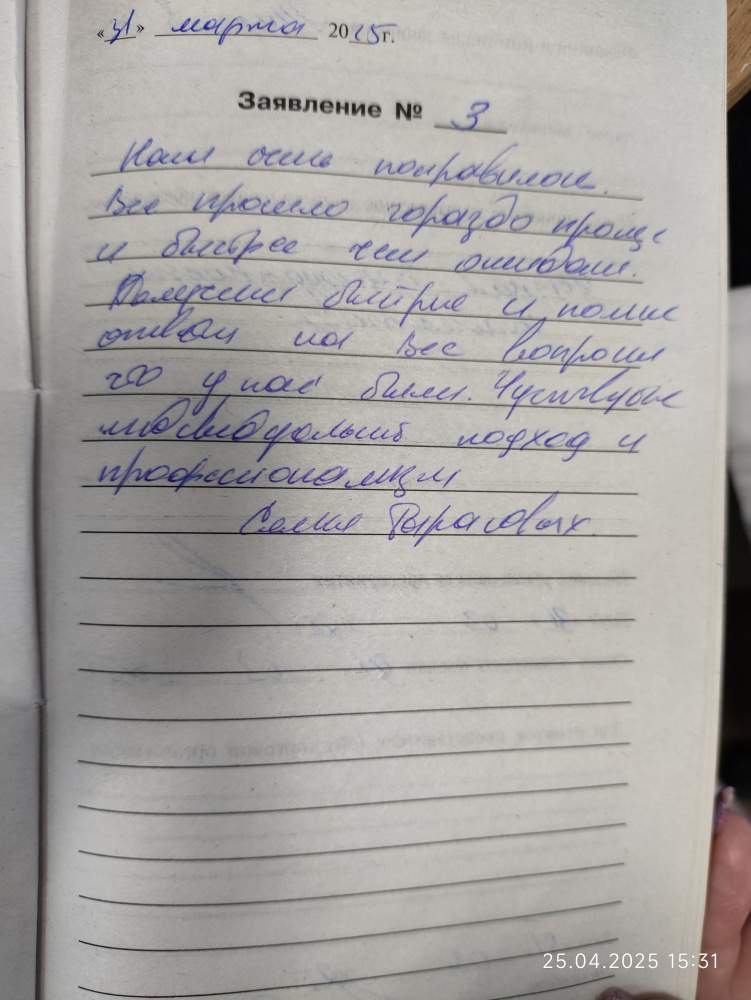 «31» марта 2025г.
Заявление № 3
Нам очень понравилось.
Все прошло гораздо проще
и быстрее чем ожидали.
Получили быстрые и полные
ответы на все вопросы
что у нас были. Чувствуется
индивидуальный подход и
профессионализм
Семья
25.04.2025 15:31